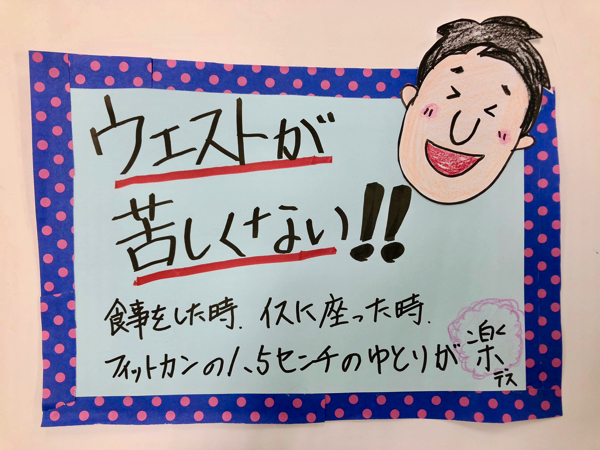 ウエストが
苦しくない!!
食事をした時、イスに座った時、
フィットカンの1、5センチのゆとりが楽
デス